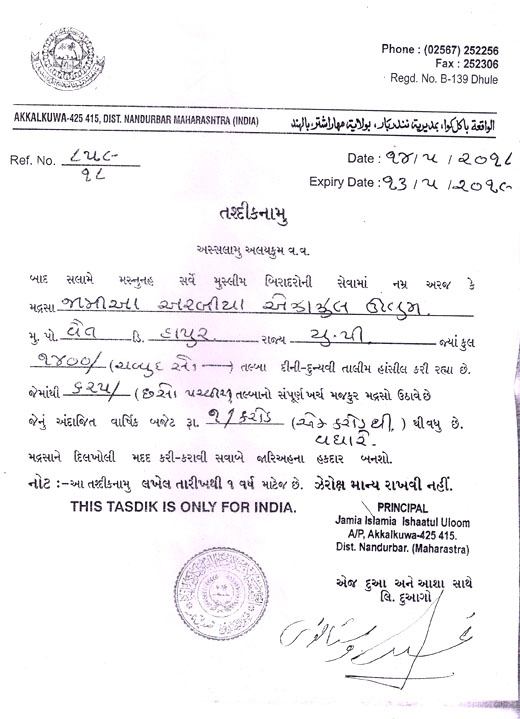 Phone : (02567) 252256
Fax : 252306
Regd. No. B-139 Dhule
AKKALKUWA-425 415, DIST. NANDURBAR MAHARASHTRA (INDIA) الواقعة باكل كوا، بمديرية نندربار، بولاية مهاراشتر، بالهند
Ref. No. ૮૫૯/૧૮ Date : ૧૪/૫/૨૦૧૮
Expiry Date : ૧૩/૫/૨૦૧૯
તશ્દીકનામુ
અસ્સલામુ અલયકુમ વ.વ.
બાદ સલામે મસ્નુનહ સર્વે મુસ્લીમ બિરાદરોની સેવામાં નમ્ર અરજ કે
મદ્રસા જામીઆ અરબીયા એઝાઝુલ ઉલુમ
મુ. પો. વૈત ડિ. હાપુર રાજ્ય યુ.પી જ્યાં કુલ
૧૪૦૦/ (ચવ્યુદ સૌ) તલ્બા દીની-દુન્યવી તાલીમ હાંસીલ કરી રહ્યા છે.
જેમાંથી ૬૨૫/ (છસો પચ્ચીસ) તલ્બાનો સંપૂર્ણ ખર્ચ મજકુર મદ્રસો ઉઠાવે છે
જેનું અંદાજિત વાર્ષિક બજેટ રૂા. ૧/કરોડ (એક કરોડથી વધારે.) થીવધુ છે.
મદ્રસાને દિલખોલી મદદ કરી-કરાવી સવાબે જારિઅહના હકદાર બનશો.
નોટ :-આ તશ્દીકનામુ લખેલ તારીખથી ૧ વર્ષ માટેજ છે. ઝેરોક્ષ માન્ય રાખવી નહીં.
THIS TASDIK IS ONLY FOR INDIA.
PRINCIPAL
Jamia Islamia Ishaatul Uloom
A/P, Akkalkuwa-425 415.
Dist. Nandurbar. (Maharastra)
એજ દુઆ અને આશા સાથે
લિ. દુઆગો